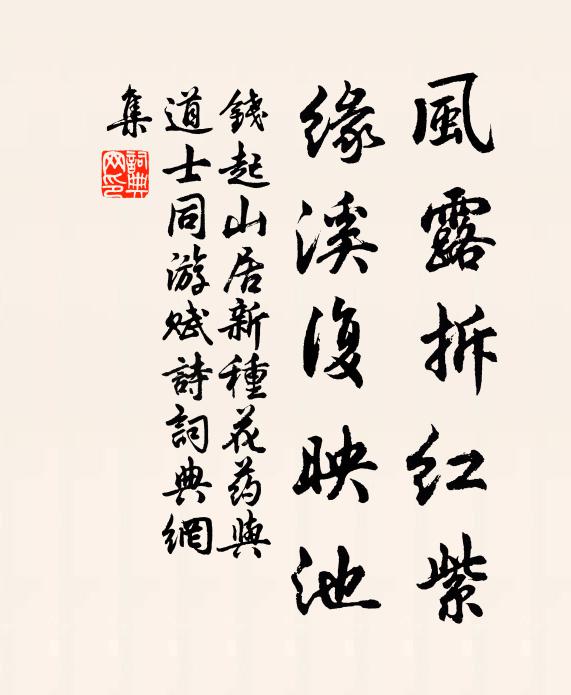 風露拆紅紫
緣溪復映池
錢起山居新種花药與
道士同游賦詩詞典網
集
詞典網印